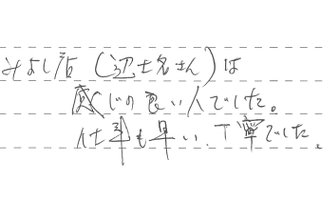 みよし店（辺土名さん）は
感じの良い人でした。
仕事も早い、丁寧でした。